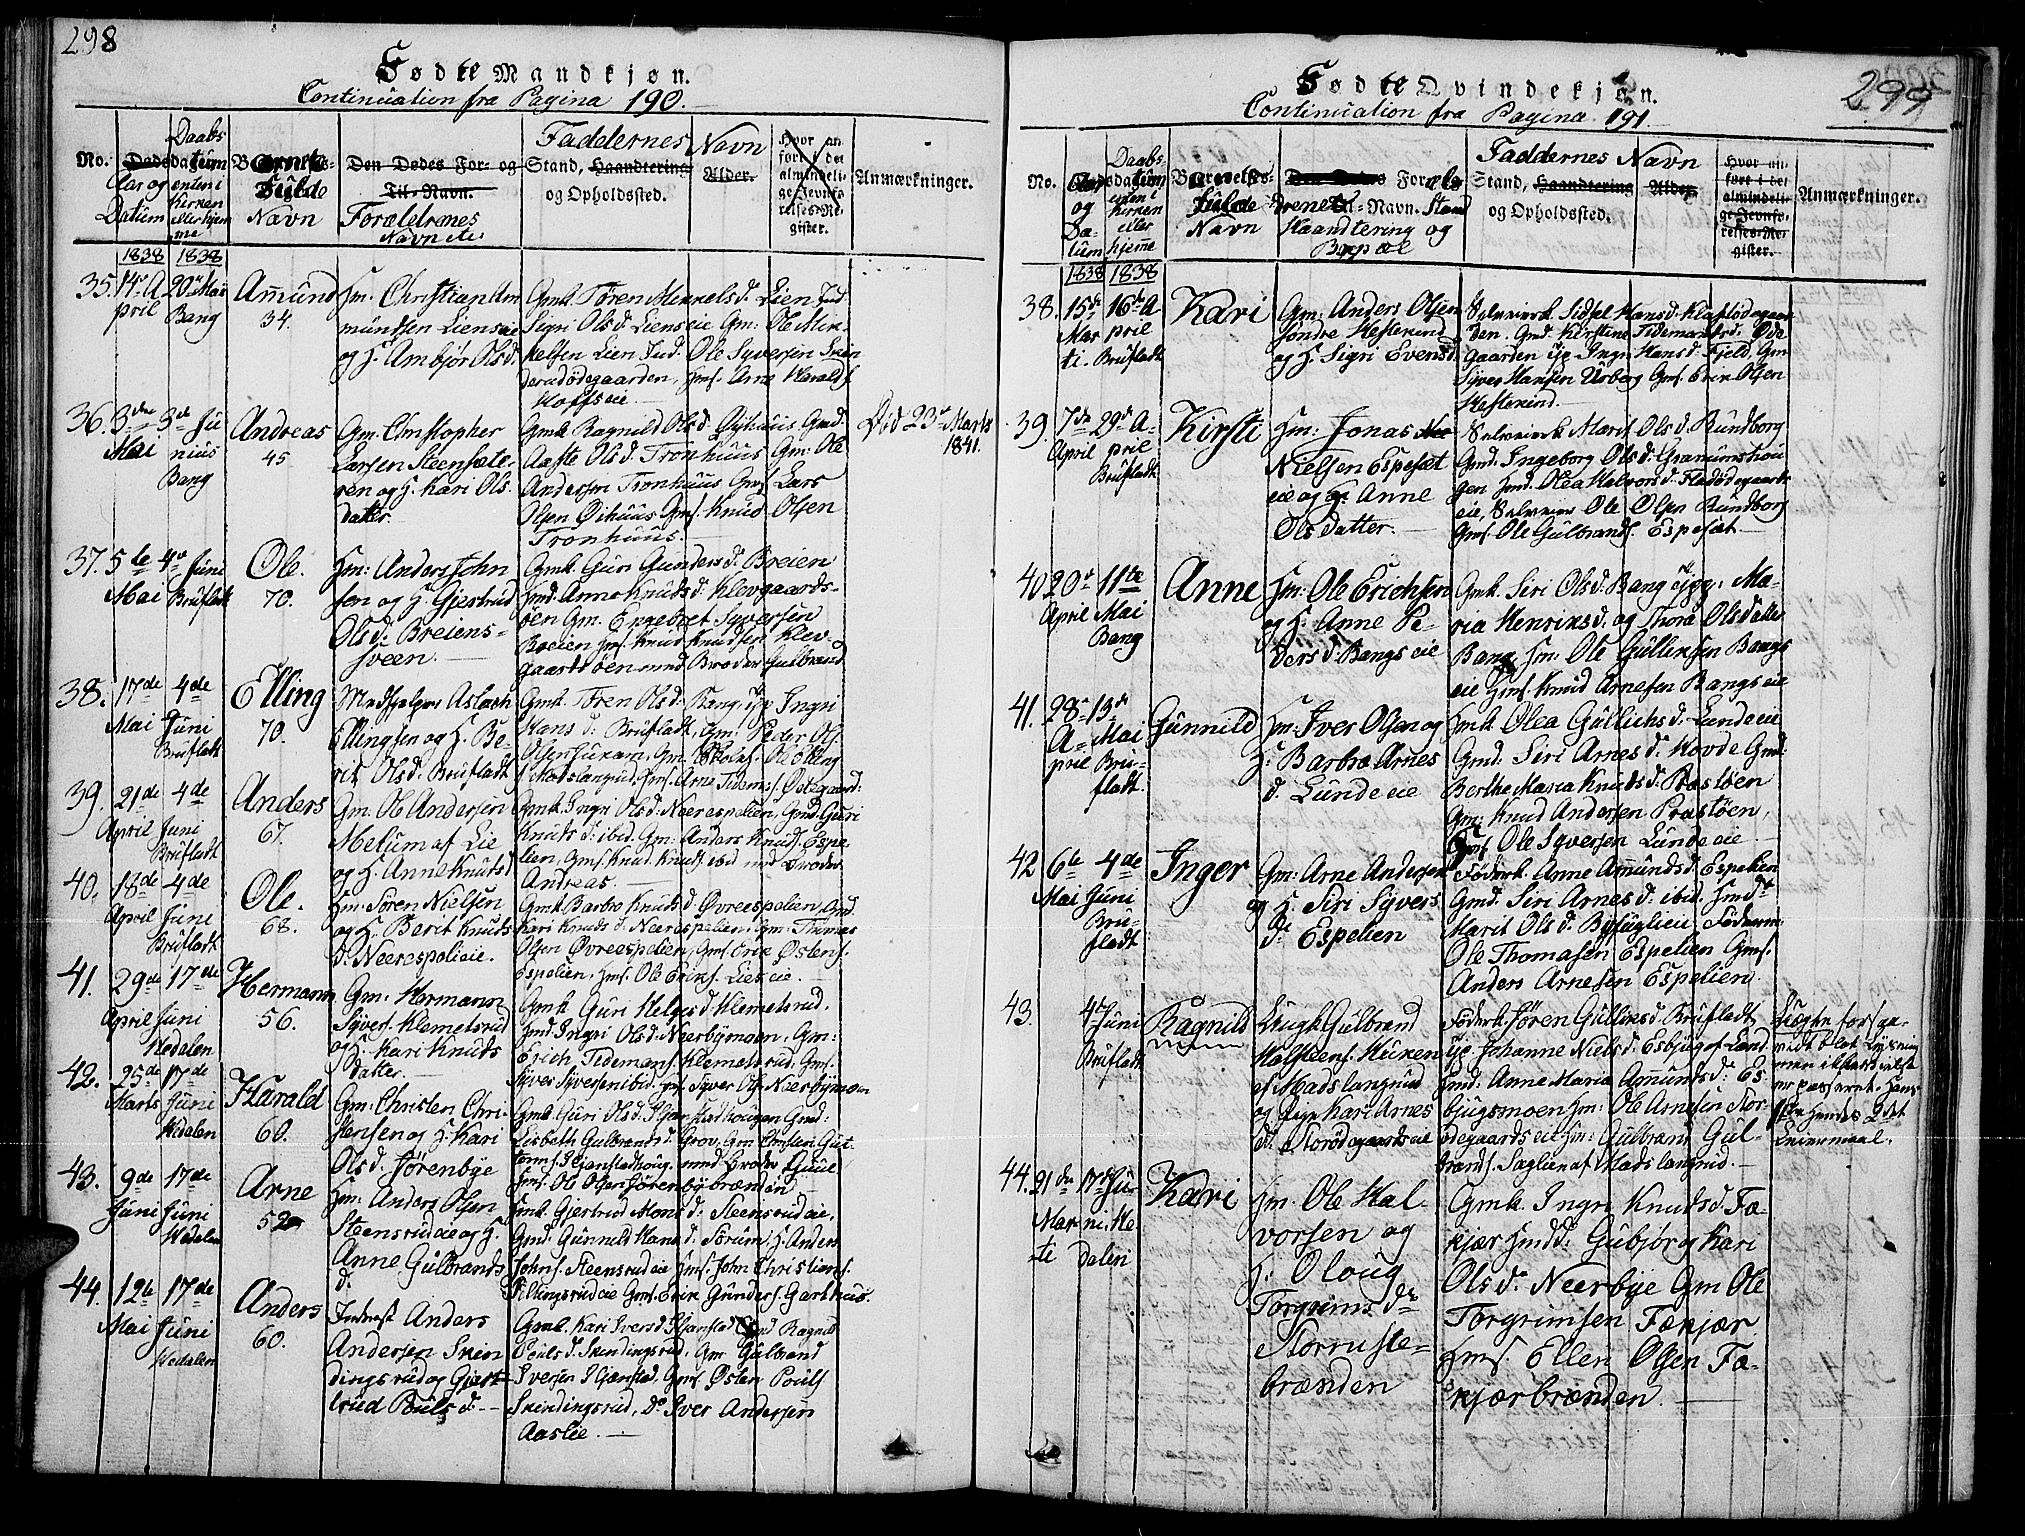 298
Fødte Mandkjøn.
Continuation fra Pagina 190.
No.
Aar og
Datum
Daabs
datum
enten i
Kirken
eller hjem
me
Barnets
fulde
Navn
Den Dødes For- og
Til-Navn.
Forældrenes
Navn etc.
Faddernes Navn
Stand, Haandtering Alder.
og Opholdssted.
Hvor an
fört i det
almindeli-
ge Jevnfö-
relses-Re-
gister.
Anmærkninger.
1838 1838
35. 14de A
pril
20de Mai
Bang
Amund
34.
Hm. Christian Am
mundsen Lienseie
og H. Ambjør Olsd.
Gmk. Tøren Mikkelsd. Lien Ind.
Sigri Olsd. Lienseie Gm: Ole Mik-
kelsen Lien Ind. Ole Syversen Skin
derudødegaarden, Hmf. Arne Haralds.
Hoffseie
36. 3die
Mai
3de Ju
nius
Bang
Andreas
45
Gm. Christopher
Larsen Steensæte-
ren og H. Kari Ols
datter.
Gmk Ragnild Olsd. Øyhuus Gmd.
Aaste Olsd. Tronhuus Gm: Ole
Andersen Tronhuus Gmf Lars
Olsen Øihuus Gmf. Knud Olsen
Tronhuus.
Død 23de Marts
1841.
37. 5te
Mai
4de Juni
Brufladt
Ole.
70.
Hm: Anders John
sen og H. Gjertrud
Olsd. Breiens-
sveen.
Gmk. Guri Gundersd. Breien
Hmd. Anne Knudsd. Klevgaards-
øen Gm. Engebret Syversen
Breien Hmf. Knud Knudsen Klev-
gaardsøen med Broder Gulbrand
38. 17de
Mai
4de
Juni
Brufladt
Elling
70.
Medhjelper Aslach
Ellingsen og H. Be-
rit Olsd. Brufladt
Gmk. Tøren Olsd. Bang, Pige Ingri
Hansd. Brufladt, Gm: Peder Ols.
39. 21de
April
4de
Juni
Brufladt
Anders
67.
Gm. Ole Andersen
Melum af Lie
og H. Anne Knudsd
Gmk. Ingri Olsd. Neerespelien, Gmd. Guri
Knudsd: ibid. Gm: Anders Knuds. Espe
lien, Gmf. Knud Knuds. ibid med Broder
Andreas.
40. 18de
April
4de
Juni
Brufladt
Ole.
68.
Hm. Søren Nielsen
og H. Berit Knuds
d. Neerespelieie.
Gmk Barbro Knudsd. Øvreespelien, Gmd
Kari Knudsd. Neerespelien. Gm: Thomas
Olsen Øvreespelien, Gmf. Erik Østens.
Espelien, Hmf. Ole Eriks. Lieseie.
41. 29de
April
17de
Juni
Hedalen
Hermann
56.
Gm: Hermann
Syvers. Klemetsrud
og H. Kari Knuds
datter.
Gmk Guri Helgesd. Klemetsrud,
Hmd Ingri Olsd. Neerbymoen, Gm:
Erich Tidemans. Klemetsrud. Gmf.
Syver Syversen ibid. Gmf. Syver Ols. Neerbymoen
42. 25de
Marts
17de
Juni
Hedalen
Harald
60.
Gm: Christen Chri-
stensen og H. Kari
Olsd. Jørenbye
Gmk: Guri Olsd.
Lisbeth Gulbrandsd. Grov, Gm.
med Broder
Hmf. Ole Olsen Jørenbybrænden
43. 9de
Juni
17de
Juni
Hedalen
Arne
52
Hm. Anders Olsen
Steensrudeie og H.
Anne Gulbrands
d.
Hmk. Gjertrud Monsd: Steensrudeie,
Gmd. Gunnild Hansd: Sørum, H. Anders
Johns. Steensrudeie Hmf. John Christians.
Ellingsrudeie Gmf. Erik Gunders. Garthus.
44. 12te
Mai
17de
Juni
Hedalen
Anders
60.
Inderst Anders
Andersen Sken
dingsrud og Gjert-
trud Pouls d.
Gmk. Kari Iversd Gjænstad Gmd Ragnild
Poulsd. Skindingsrud, Gm Gulbrand
Iversen Gjænstad, Gmf Østen Pouls
Skindingsrud, Do Iver Andersen
Aaslie.
299
Fødte Qvindekjøn.
Continuation fra Pagina 191.
No.
Aar
og
Da-
tum
Daabs-
datum
enten i
Kirken
eller
hjeme
Barnets
fulde
Navn
Foræl-
drenes Til-Navn. Stand
Haandtering og
Bopæl
Faddernes Navn
Stand, Haandtering Alder
og Opholdssted.
Hvor an-
fört i det
almindeli-
ge Jevnfø-
relses-Re-
gister.
Anmærkninger.
1838 1838
38. 15de
Mar
ti.
16de A
pril
Brufladt
Kari
Gm: Anders Olsen
Søndre Hestekind
og H. Sigri Evensd.
Selveierk Sidsel Hansd. Kladødegaar
den. Gmd Kirstine Tidemansd. Øde
gaarden Pige Ingri Hansd. Fjeld, Gm
Syver Hansen Urberg Gmf. Erik Olsen
Hestekind
39. 7de
April
29de A-
pril
Brufladt
Kirsti
Hm: Jonas
Nielsen Espesæt
eie og H. Anne
Olsdatter.
Selveierk Marit Olsd. Rundborg
Gmd. Ingeborg Olsd: Granumshou
gen Hmd. Olea Halvorsd. Fladødegaards
eie, Selveier Ole Olsen Rundborg
Gmf. Ole Gulbrands. Espesæt
40 20de
April
11te
Mai
Bang
Anne
Hm: Ole Erichsen
og H. Anne Pe-
dersd. Bangseie
Gmk. Siri Olsd. Bang Pige: Ma-
ria Henriksd. og Thora Olsdatter
Bang, Hm: Ole Gulliksen Bangs
eie Hmf. Knud Arnesen Bangseie
41. 28de
A-
pril
13de
Mai
Bru-
fladt.
Gunnild
Hm: Iver Olsen og
H. Barbro Arnes
d. Lundeeie
Hmk Olea Gullichsd. Lundeeie
Gmd: Siri Arnesd. Hovde Gmd:
Berthe Maria Knudsd. Præstøen
Gm: Knud Andersen Præstøen,
Hmf Ole Syversen Lundeeie
42 6te
Mai
4de
Juni
Bru-
fladt
Inger
Gm: Arne Andersen
og H. Siri Syvers
d. Espelien
Føderk. Anne Amundsd. Espelien
Gmd. Siri Arnesd: ibid. Hmd:
Marit Olsd. Byfuglieie Føderm.
Ole Thomasen Espelien Gmf.
Anders Arnesen Espelien.
43.
4de
Juni
Brufladt
Ragnild
Ungk Gulbrand
Halsteens. Huken
af Madslangrud
og Pige Kari Arnes
d: Storødegaardseie
Føderk. Jøren Gulliksd. Brufladt
Pige Johanne Nielsd. Esbjug af Land
Hmd: Anne Maria Amundsd: Es
bjugsmoen Hm: Ole Arnesen Stor
ødegaardseie Hm: Gulbrand Gul-
brands. Saglien af Madslangrud.
Uægte
Leiermaal.
44. 31de
Mar
ti
17de Ju-
ni He-
dalen
Kari
Hm. Ole Hal-
vorsen og
H. Oloug
Torgrimsd:
Storruste-
brænden
Gmk. Ingri Knudsd. Fæ-
kjær Hmdd: Gubjør og Kari
Olsd. Neerbye Gm Ole
Torgrimsen Fækjær
Hmf. Ellen Olsen Fæ-
kjærbrænden.